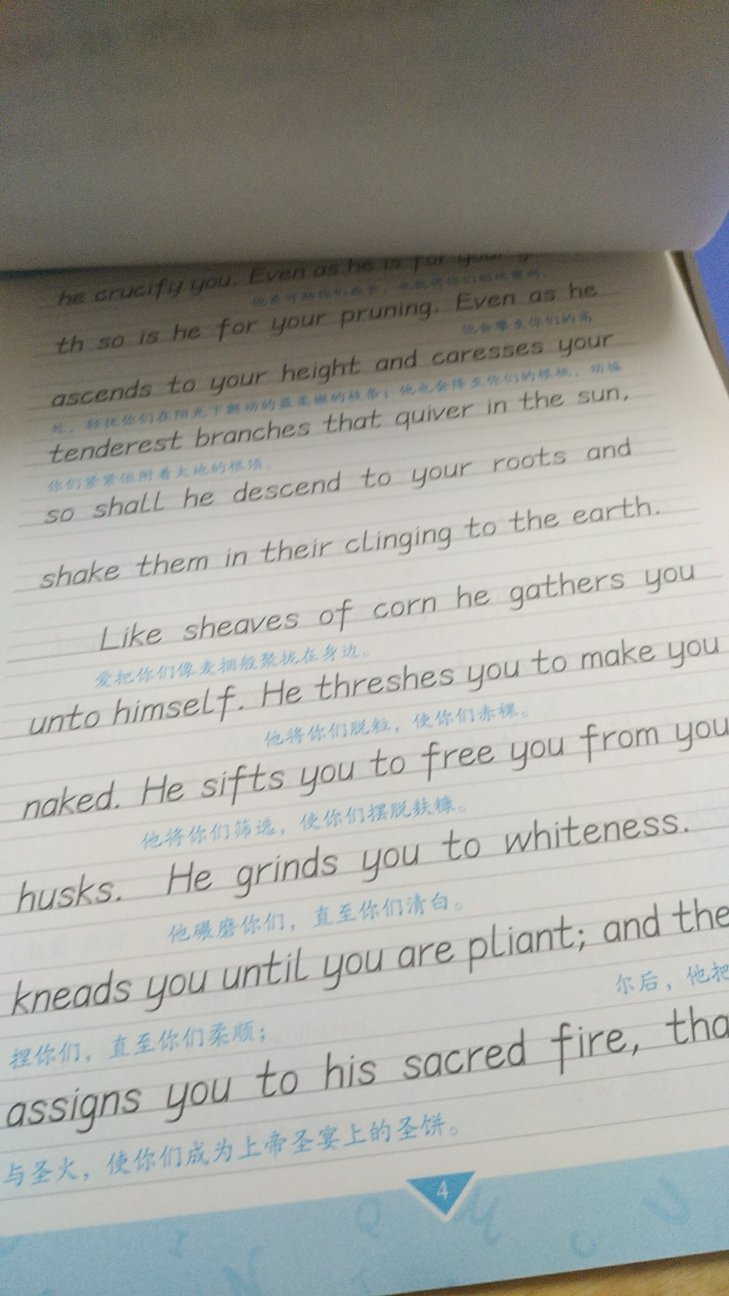 he crucify you. Even as he is for your
th so is he for your pruning. Even as he
他会攀至你们的高
ascends to your height and caresses your
处，轻抚你们在阳光下颤动的最柔嫩的枝条；他也会降至你们的根部，动摇
tenderest branches that quiver in the sun,
你们紧紧依附着大地的根须。
so shall he descend to your roots and
shake them in their clinging to the earth.
Like sheaves of corn he gathers you
爱把你们像麦捆般聚拢在身边。
unto himself. He threshes you to make you
他将你们脱粒，使你们赤裸。
naked. He sifts you to free you from you
他将你们筛选，使你们摆脱麸糠。
husks. He grinds you to whiteness.
他碾磨你们，直至你们清白。
kneads you until you are pliant; and the
尔后，他把
捏你们，直至你们柔顺；
assigns you to his sacred fire, tha
与圣火，使你们成为上帝圣宴上的圣饼。
4